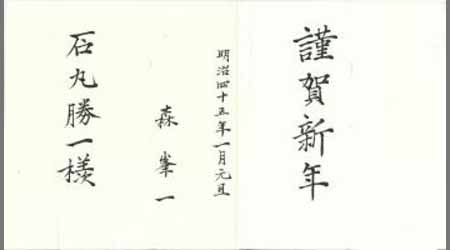 謹賀新年
明治四十五年一月元旦
森峯一
石丸勝一様